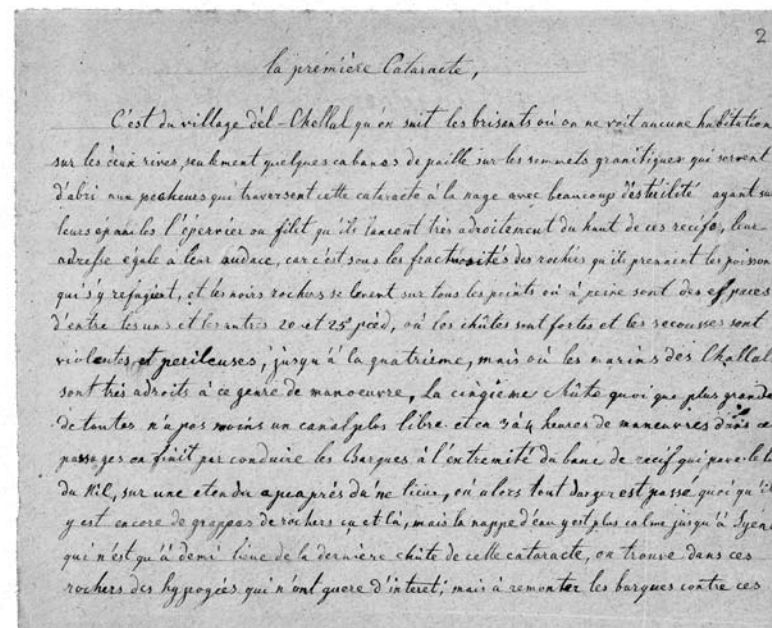 2
la première Cataracte,
C'est du village d'el-Challal qu'on suit les brisants où on ne voit aucune habitation
sur les deux rives, seulement quelques cabanes de paille sur les sommets granitiques qui servent
d'abri aux pecheurs qui traversent cette cataracte à la nage avec beaucoup d'estérilité ayant su
leurs épaules l'épervier ou filet qu'ils lancent très adroitement du haut de ces recifs, leur
adresse égale a leur audace, car c'est sous les fractuosités des rochers qu'ils prennent les poisson
qui s'y refugient, et les noirs rochers se levent sur tous les points où à peine sont des espaces
d'entre les uns et les autres 20 et 25 pied, où les chûtes sont fortes et les secousses sont
violentes et perileuses, jusqu'à la quatrième, mais où les marins des Challal
sont très adroits à ce genre de manoeuvre, La cinqieme chûte quoi que plus grande
de toutes n'a pas moins un canal plus libre et en 3 à 4 heures de maneuvres dans ce
passages on finit par conduire les Barques à l'entremité du banc de recif qui pave le l
du Nil, sur une etendu apeaprés du'ne lieue, où alors tout danger est passé quoi qu'il
y est encore de grappes de rochers ça et là, mais la nappe d'eau y est plus calme jusqu'à Syene
qui n'est qu'à demi lieue de la dernière chûte de cette cataracte, on trouve dans ces
rochers des hypogées qui n'ont guere d'interet; mais à remonter les barques contre ces